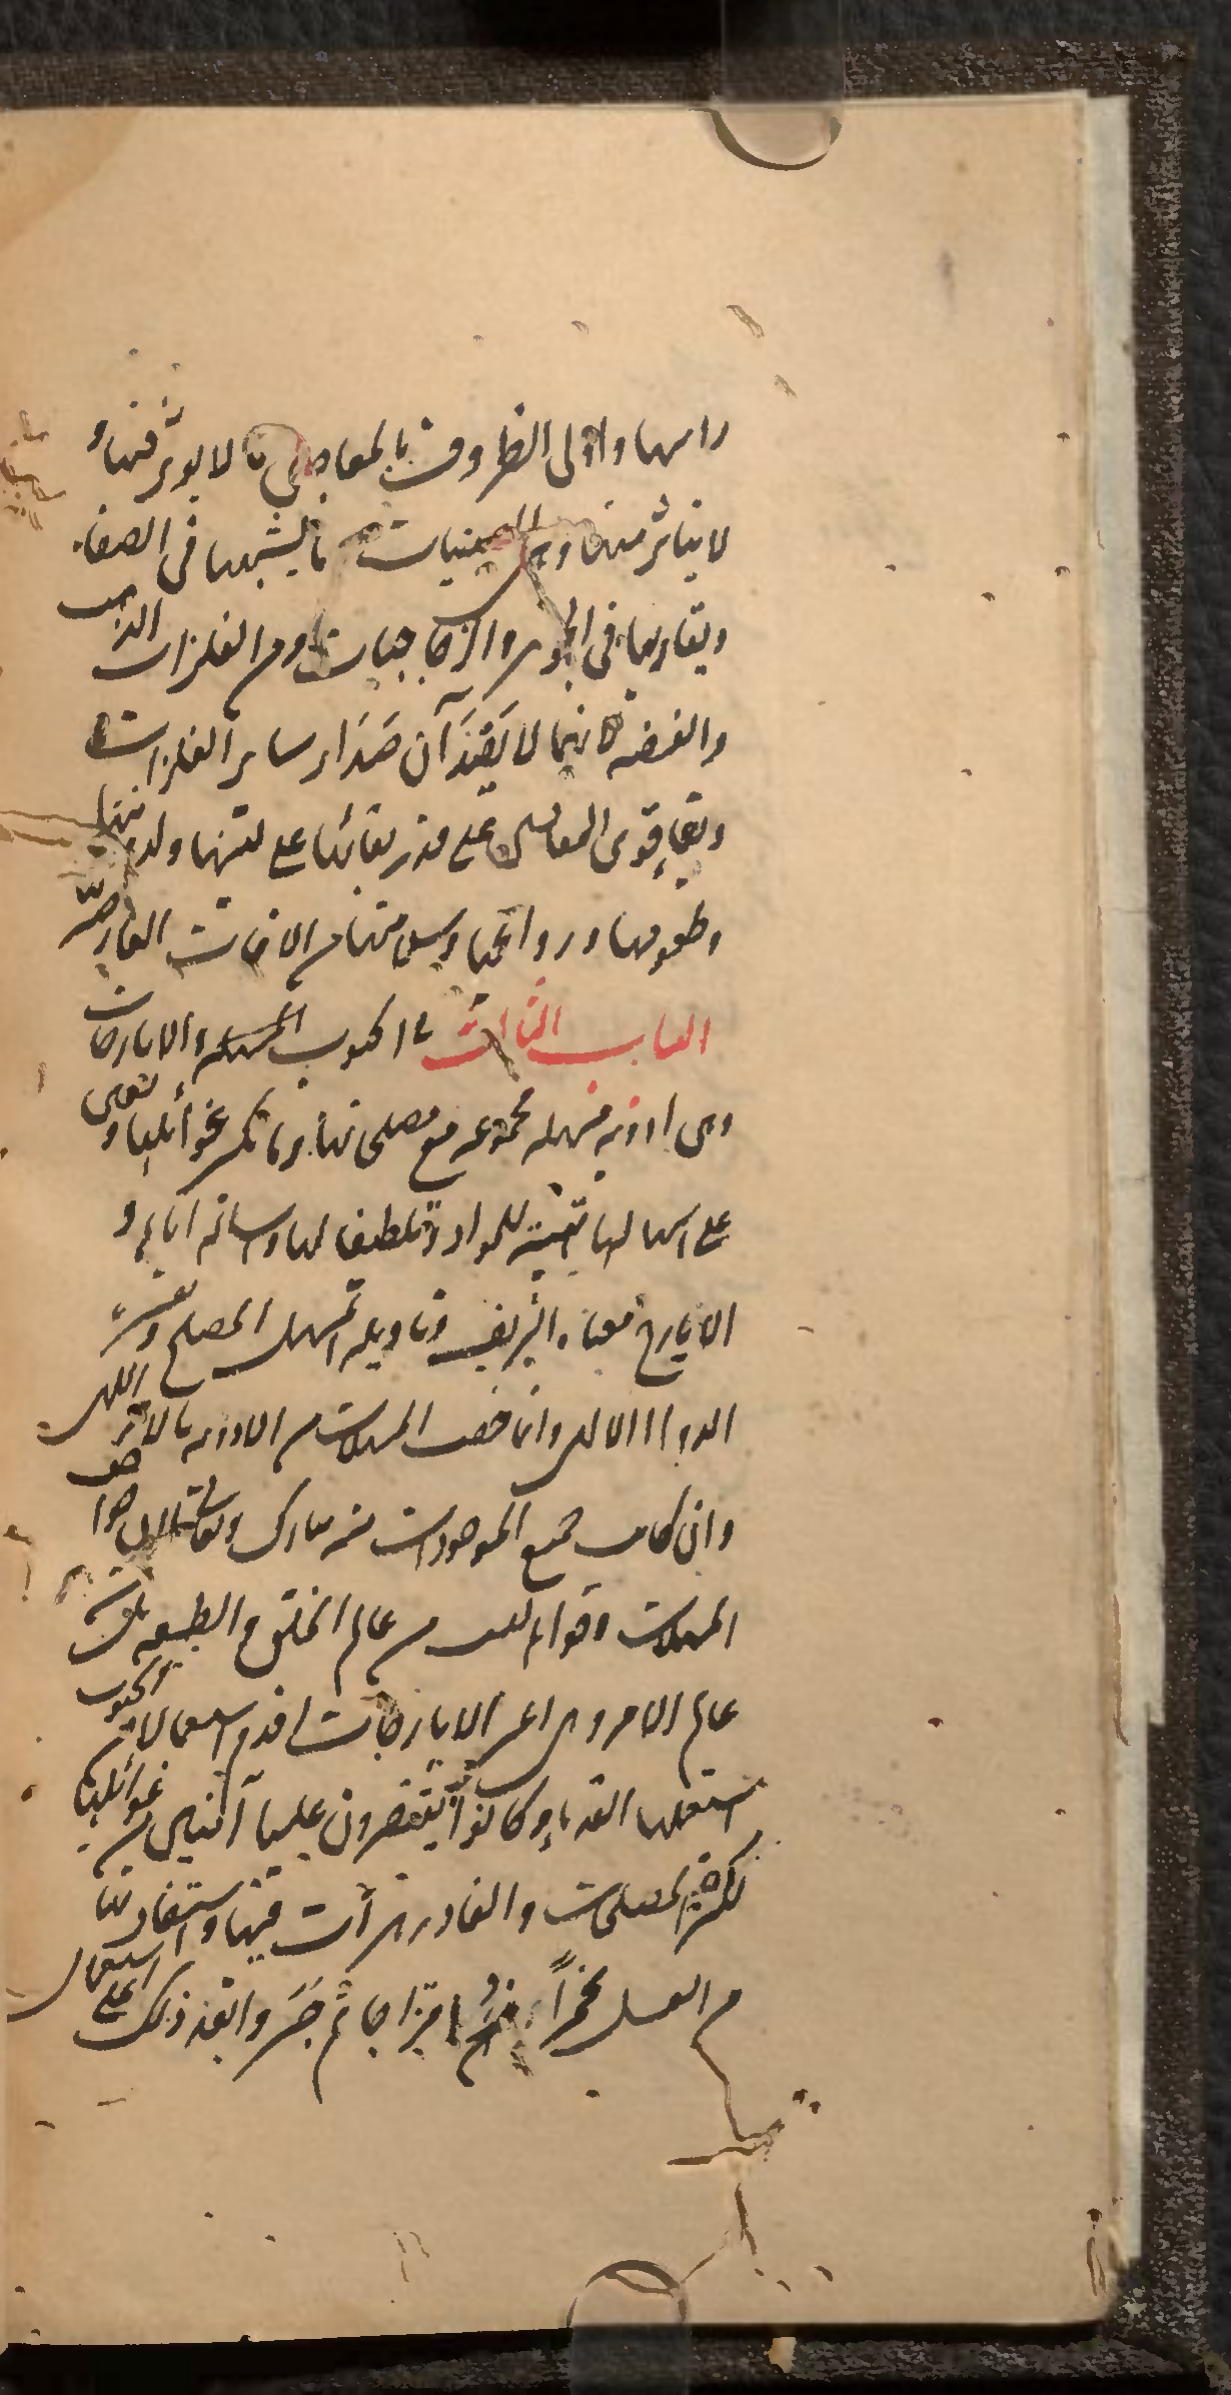 راسها واولى الظروف بالمعاجين ما لا يوثر فيها و
لا يتاثر منها وهى الصينيات وما يشبهها فى الصفاء
ويقاربها فى الجوهر والزجاجيات ومن الفلزات الذهب
والفضه فانهما لا يصدآن صداء ساير الفلزات
وبقاء قوى المعاجين على قدر بقائها على لدونتها
وطعومها وروائحها وسلامتها من الافات العارضة
الباب الثالث فى الحبوب المسهله والايارجات
وهى ادويه مسهله مجموعه مع مصلحاتها وما يكسر غوائلها و تقوى
على اسهالها تهيئة للمواد وتلطيفا لها و اياه و
الايارج معناه الشريف وتاويله المسهل المصلح وتفسيره
الدواء الالهى وانما خص المسهلات من الادويه بالالهى
وان كانت جميع الموجودات منه تبارك وتعالى لان خواص
المسهلات وقواها ليست من عالم الخلق والطبيعه بل من
عالم الامر وهى اعنى الايارجات اقدم استعمالا من الحبوب
استعملها القدماء وكانوا يقتصرون عليها آمنين من غوائلها
لكثرة المصلحات والفادزهرات فيها واستفادتها
من العسل تخمرا وامتزاجا ثم جسروا بعد ذلك على استعمال